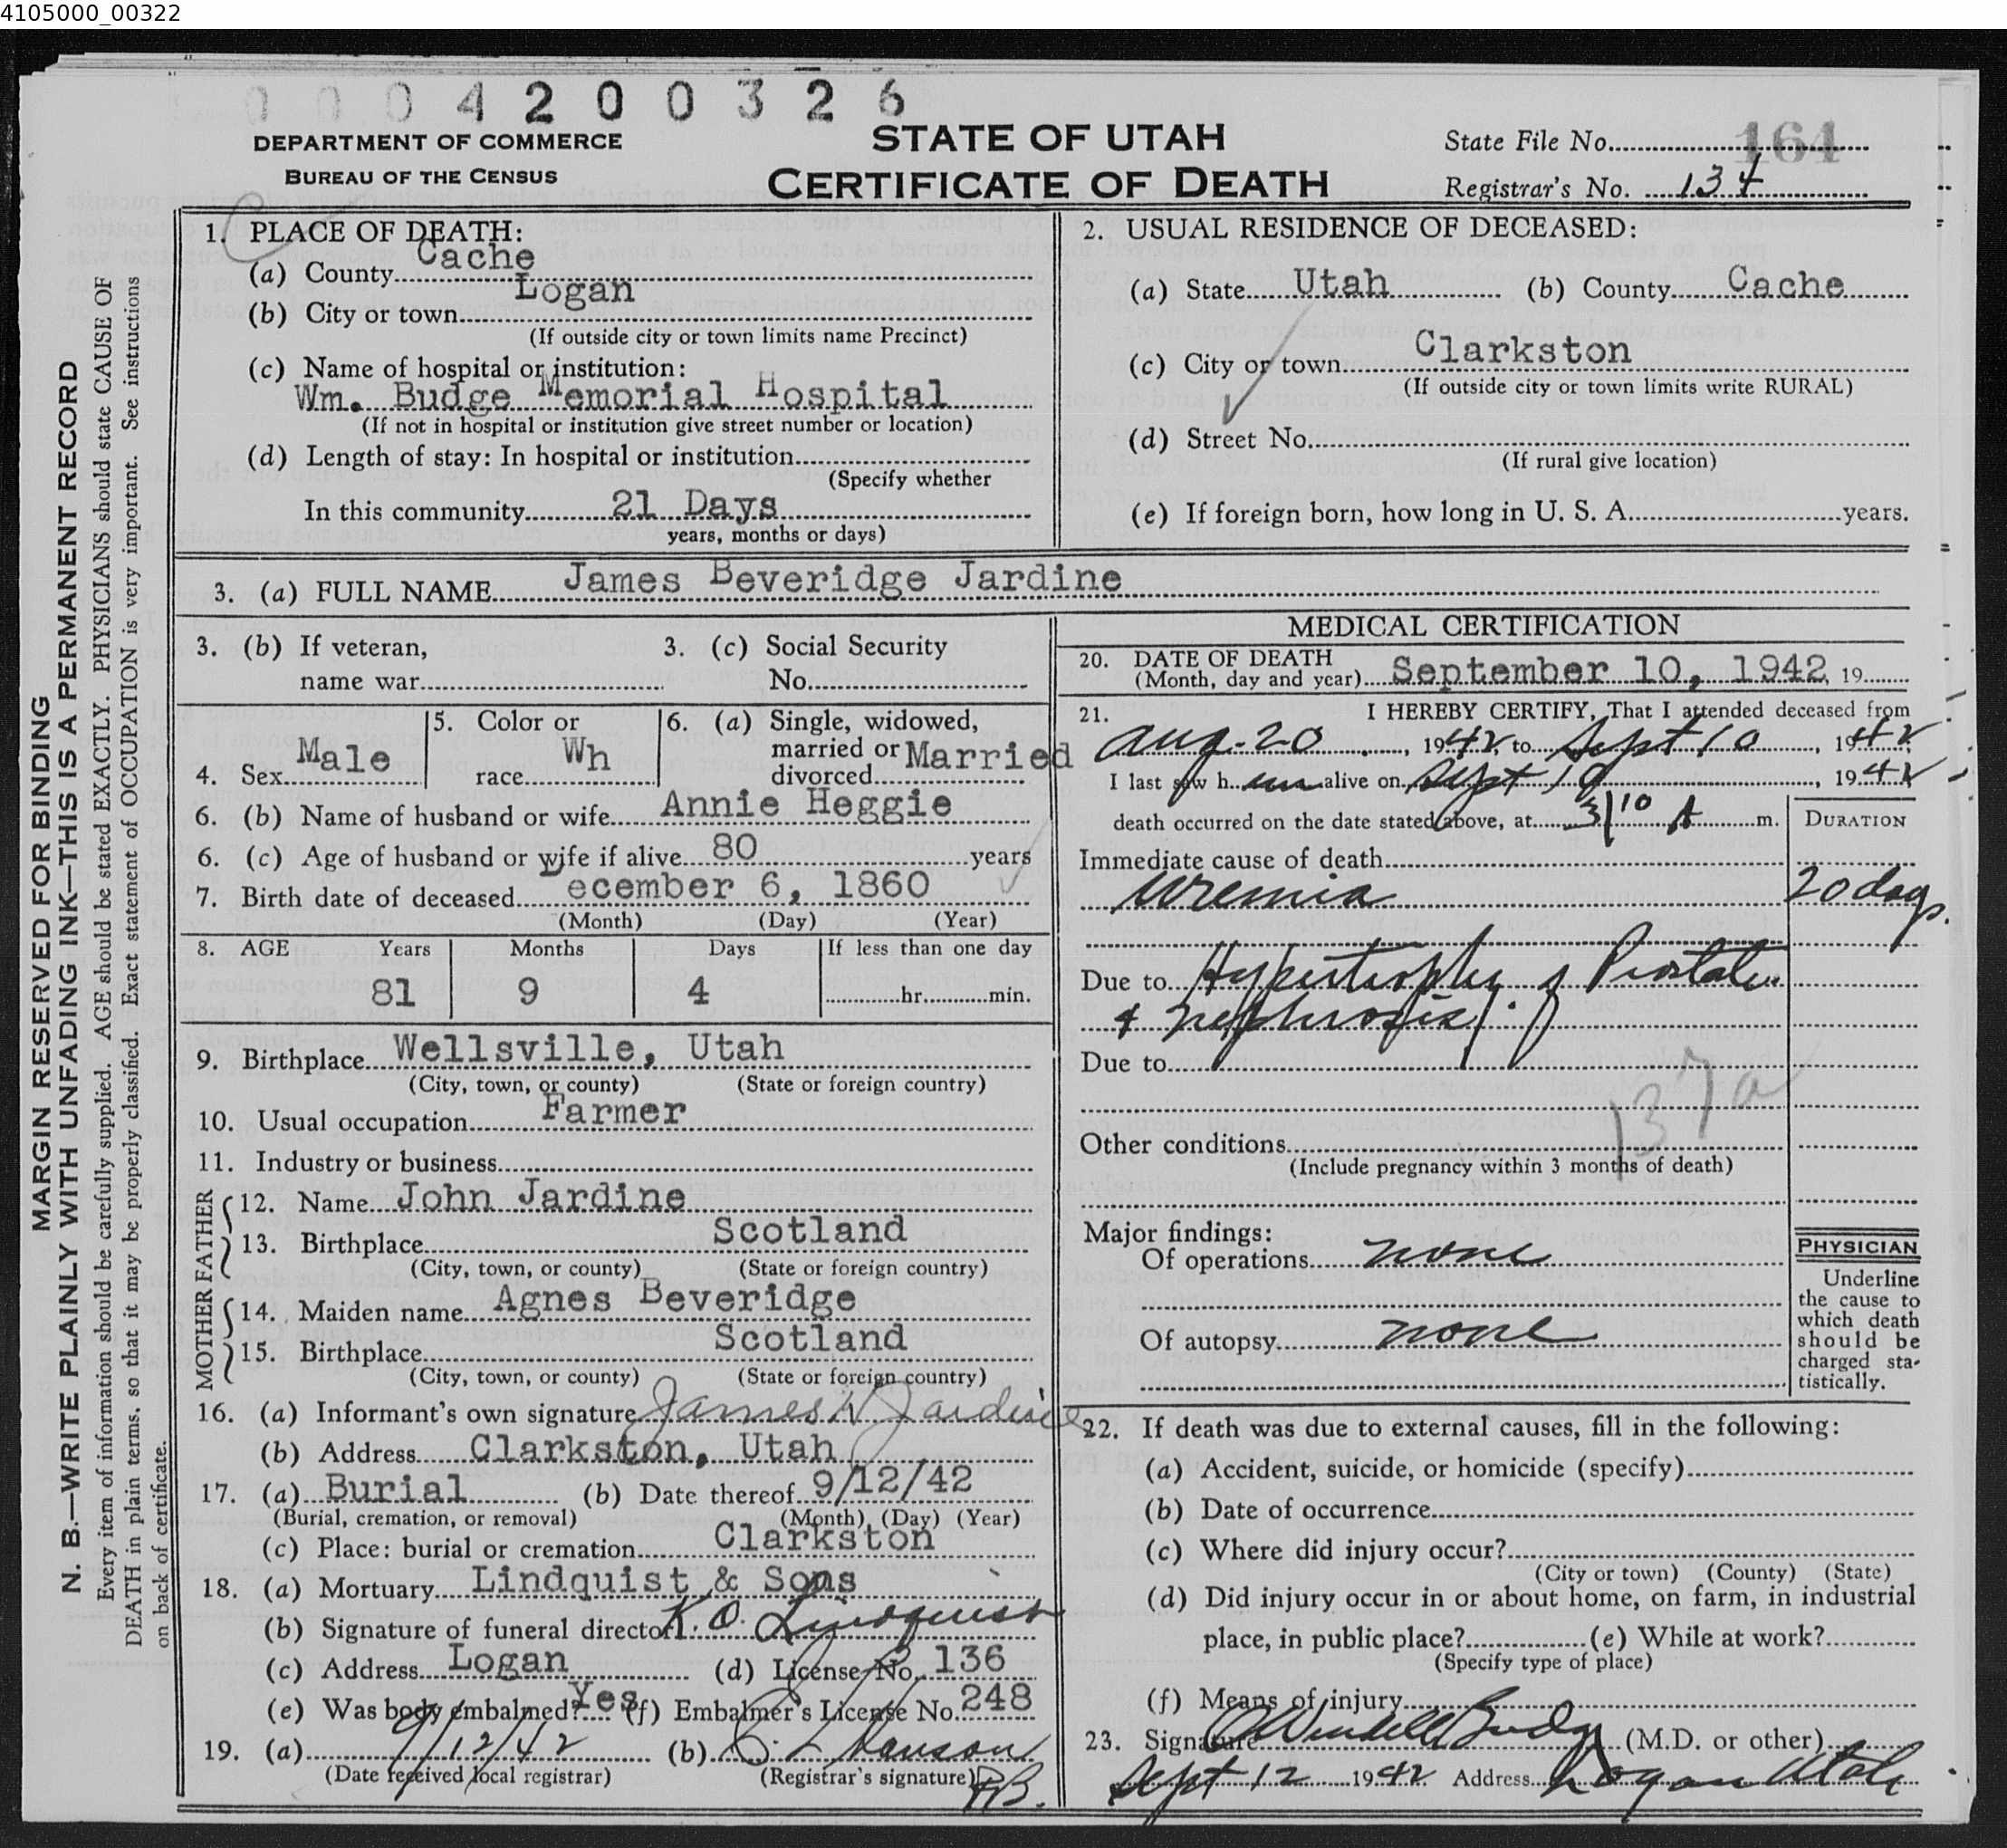 4105000_00322
0004200326
DEPARTMENT OF COMMERCE
BUREAU OF THE CENSUS
STATE OF UTAH
CERTIFICATE OF DEATH
State File No. 164
Registrar's No. 134
MARGIN RESERVED FOR BINDING
N. B.—WRITE PLAINLY WITH UNFADING INK—THIS IS A PERMANENT RECORD
Every item of information should be carefully supplied. AGE should be stated EXACTLY. PHYSICIANS should state CAUSE OF
DEATH in plain terms, so that it may be properly classified. Exact statement of OCCUPATION is very important. See instructions
on back of certificate.
1. PLACE OF DEATH:
(a) County Cache
(b) City or town Logan
(If outside city or town limits name Precinct)
(c) Name of hospital or institution:
Wm. Budge Memorial Hospital
(If not in hospital or institution give street number or location)
(d) Length of stay: In hospital or institution
(Specify whether
In this community 21 Days
years, months or days)
2. USUAL RESIDENCE OF DECEASED:
(a) State Utah (b) County Cache
(c) City or town Clarkston
(If outside city or town limits write RURAL)
(d) Street No.
(If rural give location)
(e) If foreign born, how long in U. S. A. years.
3. (a) FULL NAME James Beveridge Jardine
3. (b) If veteran,
name war
3. (c) Social Security
No.
4. Sex Male
5. Color or
race Wh
6. (a) Single, widowed,
married or
divorced Married
6. (b) Name of husband or wife Annie Heggie
6. (c) Age of husband or wife if alive 80 years
7. Birth date of deceased ecember 6, 1860
(Month) (Day) (Year)
8. AGE Years Months Days If less than one day
81 9 4 hr. min.
9. Birthplace Wellsville, Utah
(City, town, or county) (State or foreign country)
10. Usual occupation Farmer
11. Industry or business
FATHER
12. Name John Jardine
13. Birthplace Scotland
(City, town, or county) (State or foreign country)
MOTHER
14. Maiden name Agnes Beveridge
15. Birthplace Scotland
(City, town, or county) (State or foreign country)
16. (a) Informant's own signature James Jardine
(b) Address Clarkston, Utah
17. (a) Burial (b) Date thereof 9/12/42
(Burial, cremation, or removal) (Month) (Day) (Year)
(c) Place: burial or cremation Clarkston
18. (a) Mortuary Lindquist & Sons
(b) Signature of funeral director K. O. Lindquist
(c) Address Logan (d) License No. 136
(e) Was body embalmed? Yes (f) Embalmer's License No. 248
19. (a) 9/12/42 (b) Hanson
(Date received local registrar) (Registrar's signature)
MEDICAL CERTIFICATION
20. DATE OF DEATH
(Month, day and year) September 10, 1942, 19
21. I HEREBY CERTIFY, That I attended deceased from
Aug. 20, 1942, to Sept 10, 1942
I last saw h im alive on Sept 10, 1942
death occurred on the date stated above, at 3/10 A m.
DURATION
Immediate cause of death
Uremia 20 days.
Due to Hypertrophy of Prostate
& Nephrosis
Due to
137a
Other conditions
(Include pregnancy within 3 months of death)
Major findings:
Of operations none
Of autopsy none
PHYSICIAN
Underline
the cause to
which death
should be
charged sta-
tistically.
22. If death was due to external causes, fill in the following:
(a) Accident, suicide, or homicide (specify)
(b) Date of occurrence
(c) Where did injury occur?
(City or town) (County) (State)
(d) Did injury occur in or about home, on farm, in industrial
place, in public place? (e) While at work?
(Specify type of place)
(f) Means of injury
23. Signature O Wendell Budge (M.D. or other)
Sept 12 1942 Address Logan Utah